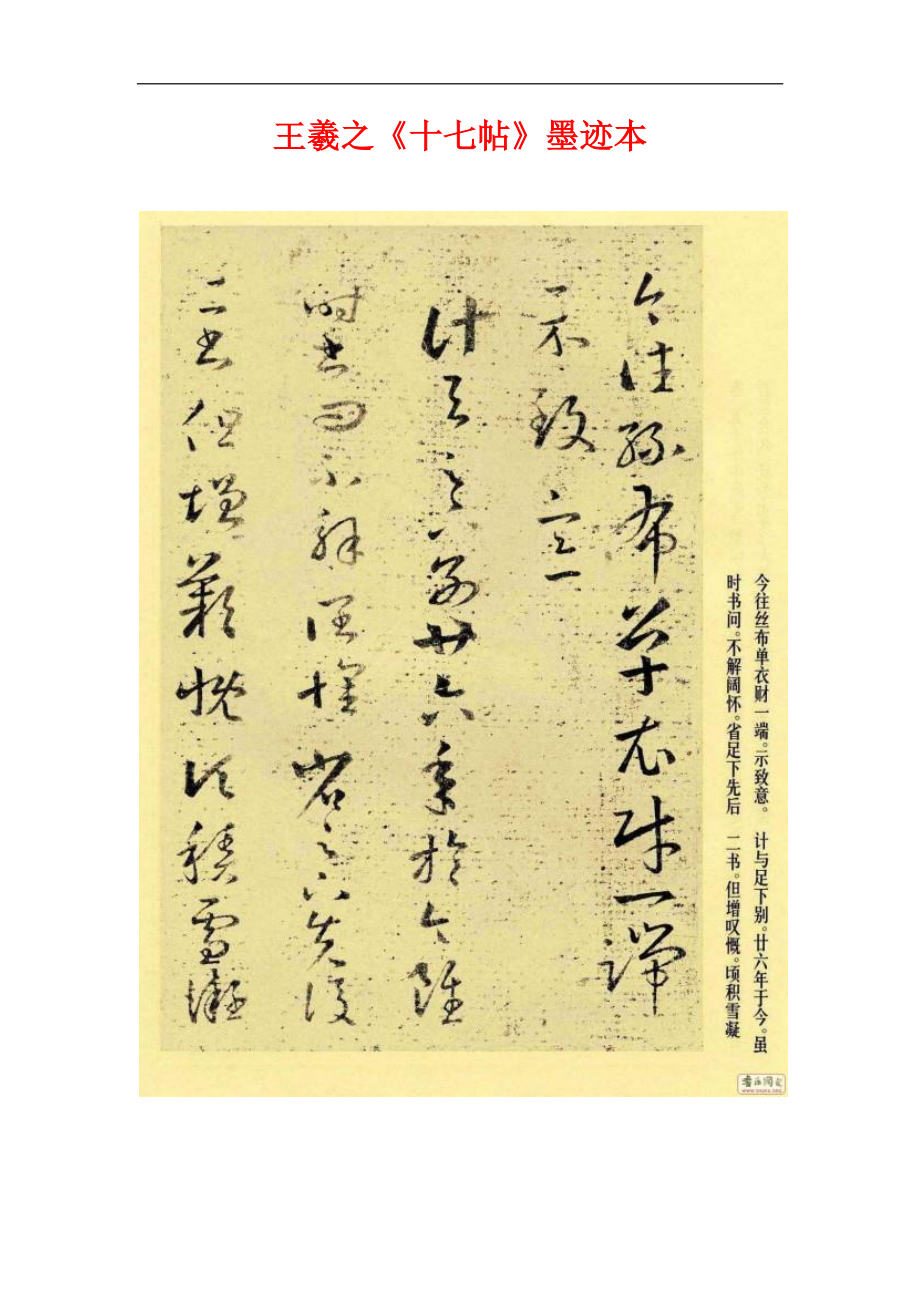 王羲之《十七帖》墨迹本
今往丝布单衣财一端。示致意。 计与足下别。廿六年于今。虽
时书问。不解阔怀。省足下先后 二书。但增叹慨。顷积雪凝
今往絲布單衣財一端
示致意
計與足下別廿六年於今雖
時書問不解闊懷省足下先後
二書但增歎慨頃積雪凝